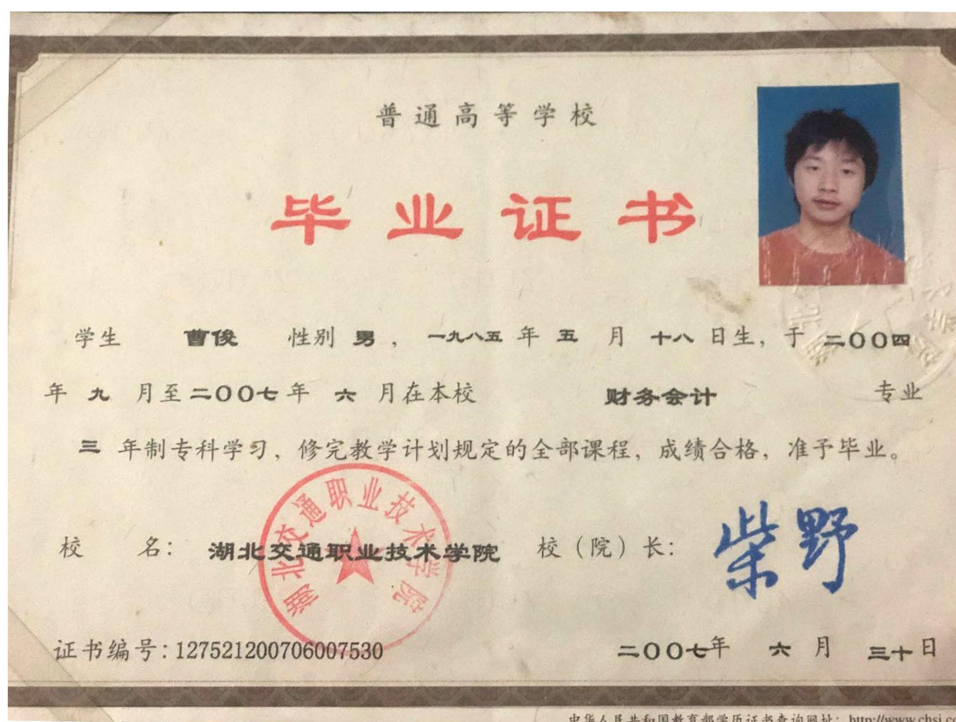 普通高等学校
毕业证书
学生 曹俊 性别 男，一九八五年 五 月 十八 日生，于 二〇〇四
年 九 月至二〇〇七年 六 月在本校 财务会计 专业
三 年制专科学习，修完教学计划规定的全部课程，成绩合格，准予毕业。
校 名：湖北交通职业技术学院 校（院）长：柴野
湖北交通职业技术学院
证书编号：127521200706007530 二〇〇七年 六 月 三十日
中华人民共和国教育部学历证书查询网址：http://www.chsi.co